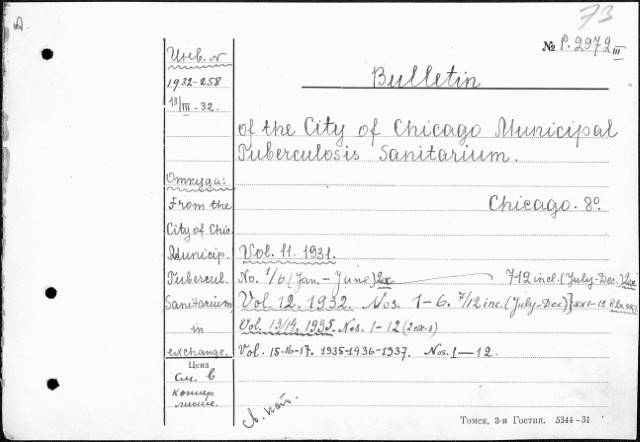 73
№ P. 2972 III
Инв. N
1932-258
13/III-32.
Bulletin
of the City of Chicago Municipal
Tuberculosis Sanitarium.
Откуда:
From the
City of Chic.
Municip.
Tubercul.
Sanitarium
in
exchange.
Chicago. 8º.
Vol. 11. 1931.
No. 1/6 (Jan.-June) 2ex 7-12 incl. (July-Dec.) 2ex
Vol. 12. 1932. Nos. 1-6. 7/12 inc. (July-Dec)}
Vol. 13/14. 1935. Nos. 1-12 (2ex-s)
Vol. 15-16-17. 1935-1936-1937. Nos. 1-12.
Цена
см. в
Томск, 3-я Гостип. 5344-31